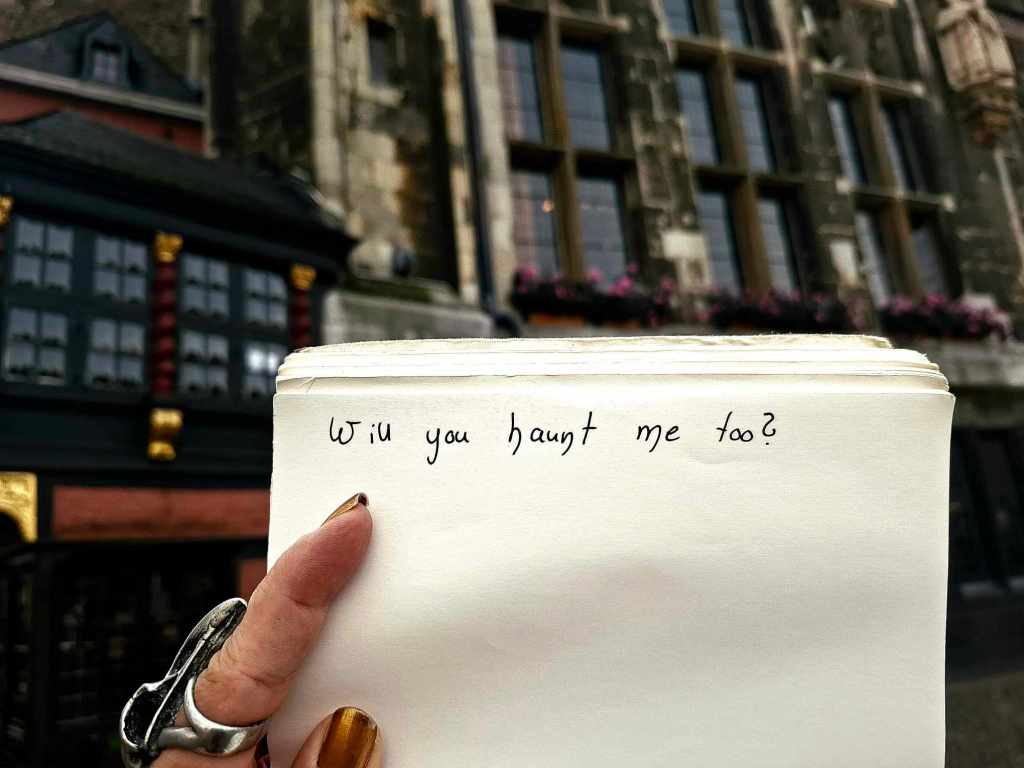 Will you haunt me too?